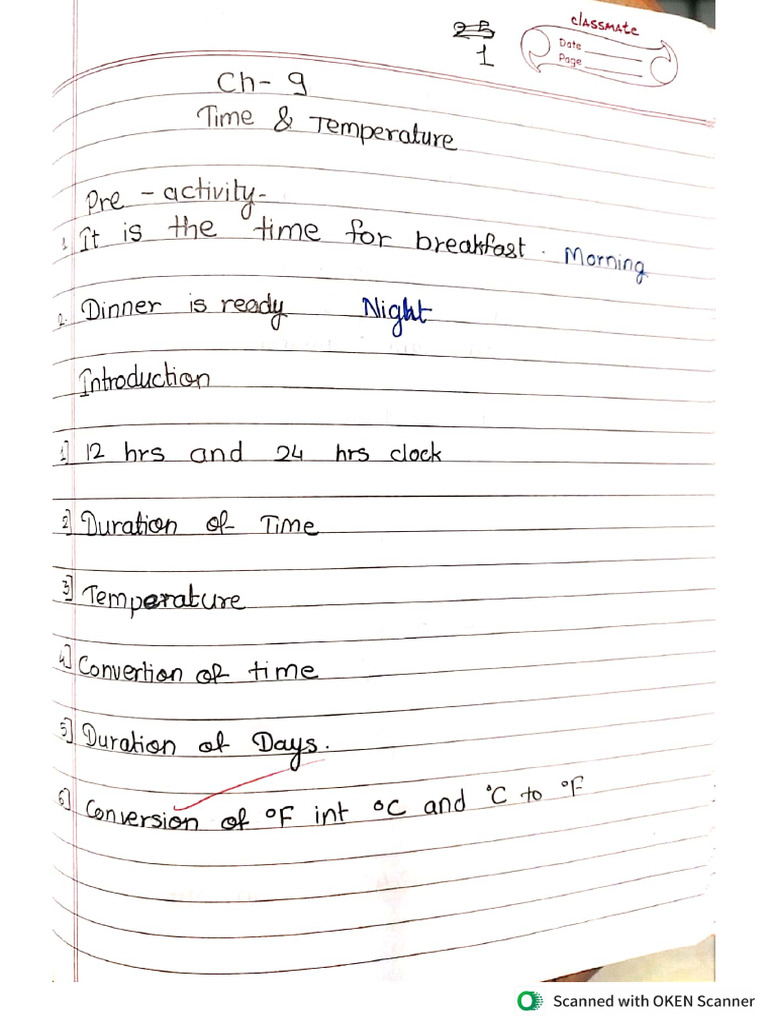 classmate
Date
Page
1
Ch- 9
Time & Temperature
Pre - activity-
1. It is the time for breakfast. Morning
2. Dinner is ready Night
Introduction
1] 12 hrs and 24 hrs clock
2] Duration of Time
3] Temperature
4] Convertion of time
5] Duration of Days.
6] Conversion of °F int °C and °C to °F
Scanned with OKEN Scanner